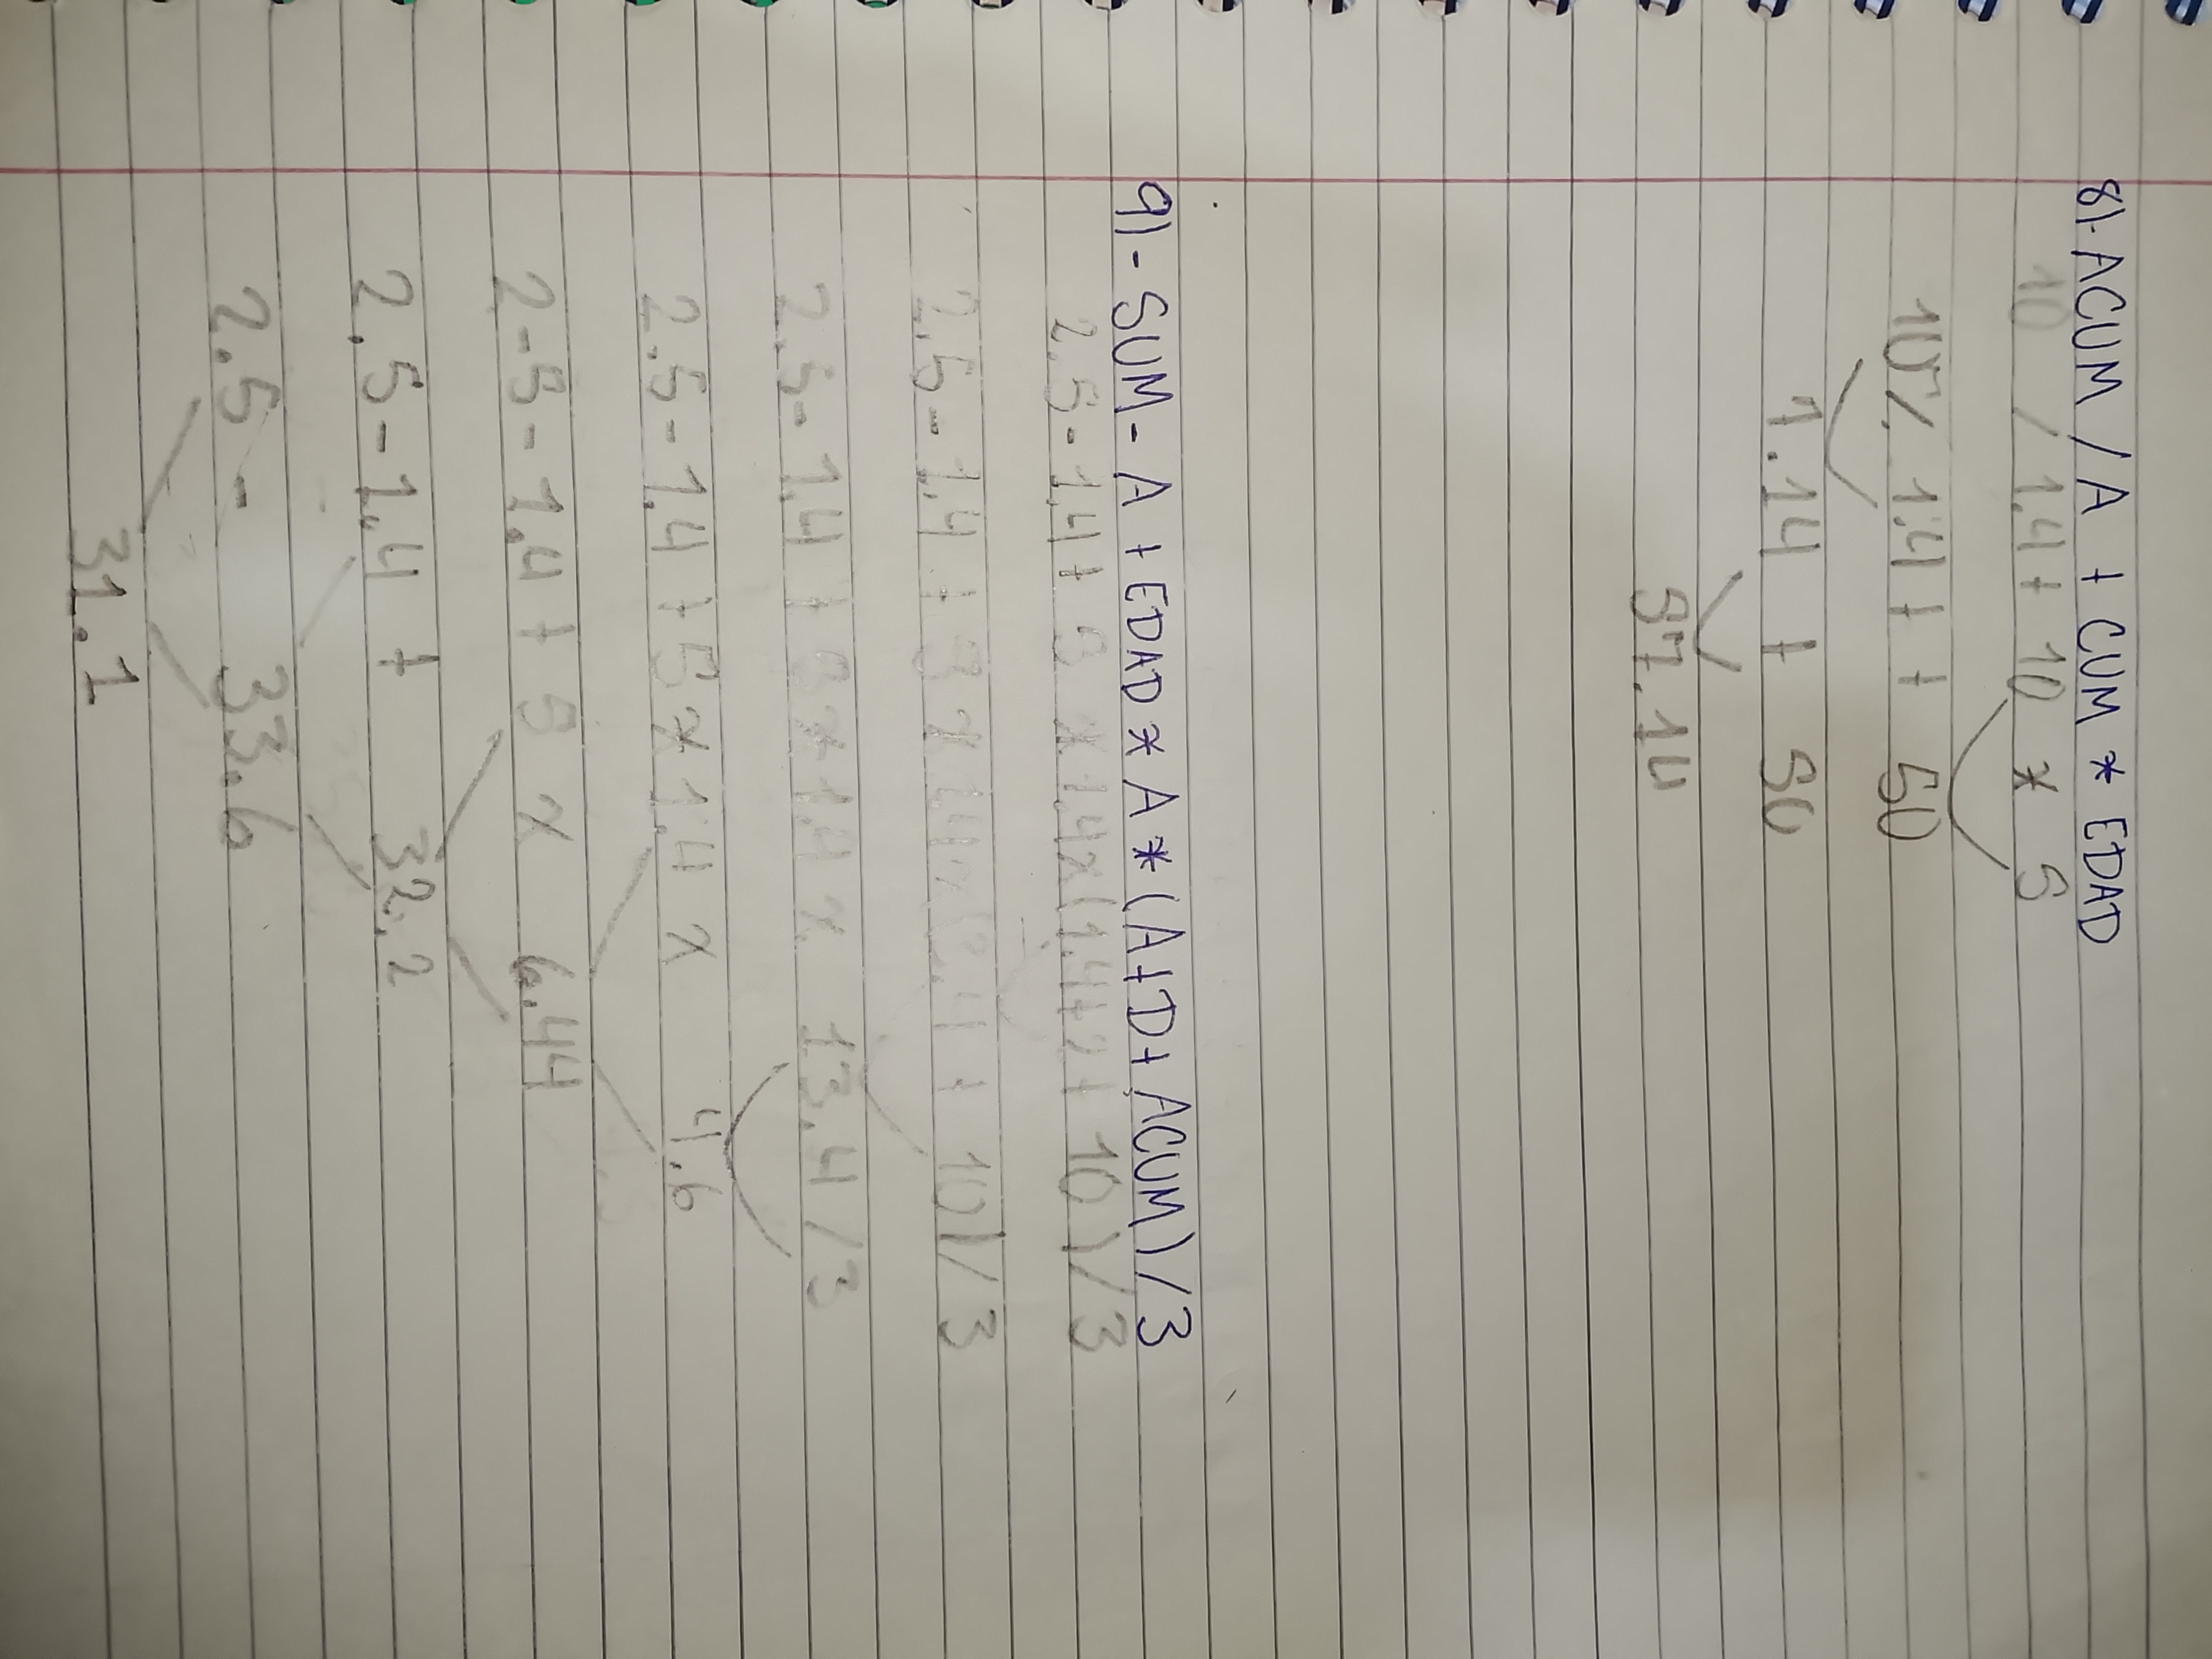 8)- ACUM / A + CUM * EDAD
10 / 1.4 + 10 * 5
10 / 1.4 + + 50
7.14 + 50
57.14
9)- SUM - A + EDAD * A * (A + D + ACUM) / 3
2.5 - 1.4 + 5 x 1.4 x (1.4 + 2 + 10) / 3
2.5 - 1.4 + 5 x 1.4 x (3.4 + 10) / 3
2.5 - 1.4 + 5 x 1.4 x 13.4 / 3
2.5 - 1.4 + 5 x 1.4 x 4.6
2-5 - 1.4 + 5 x 6.44
2.5 - 1.4 + 32.2
2.5 - 33.6
31.1